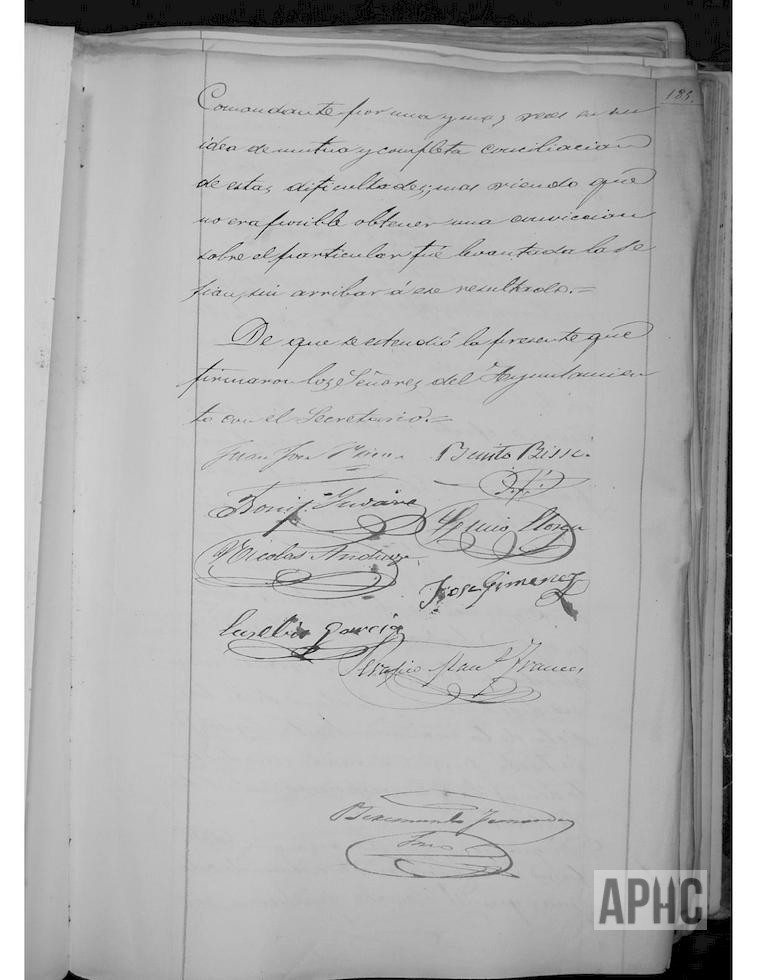 185.
Comandante por una y mas veces en su
idea de mutua y completa conciliacion
de estas dificultades; mas viendo que
no era posible obtener una conviccion
sobre el particular fué levantada la se
sion, sin arribar á ese resultado.=
De que se estendió la presente que
firmaron los Señores del Ayuntamien
to con el Secretario.=
Juan José Benito
Nicolas Andiaga
José Gimenez
Eusebio Garcia
Serapio Franco
Fernandez
APHC